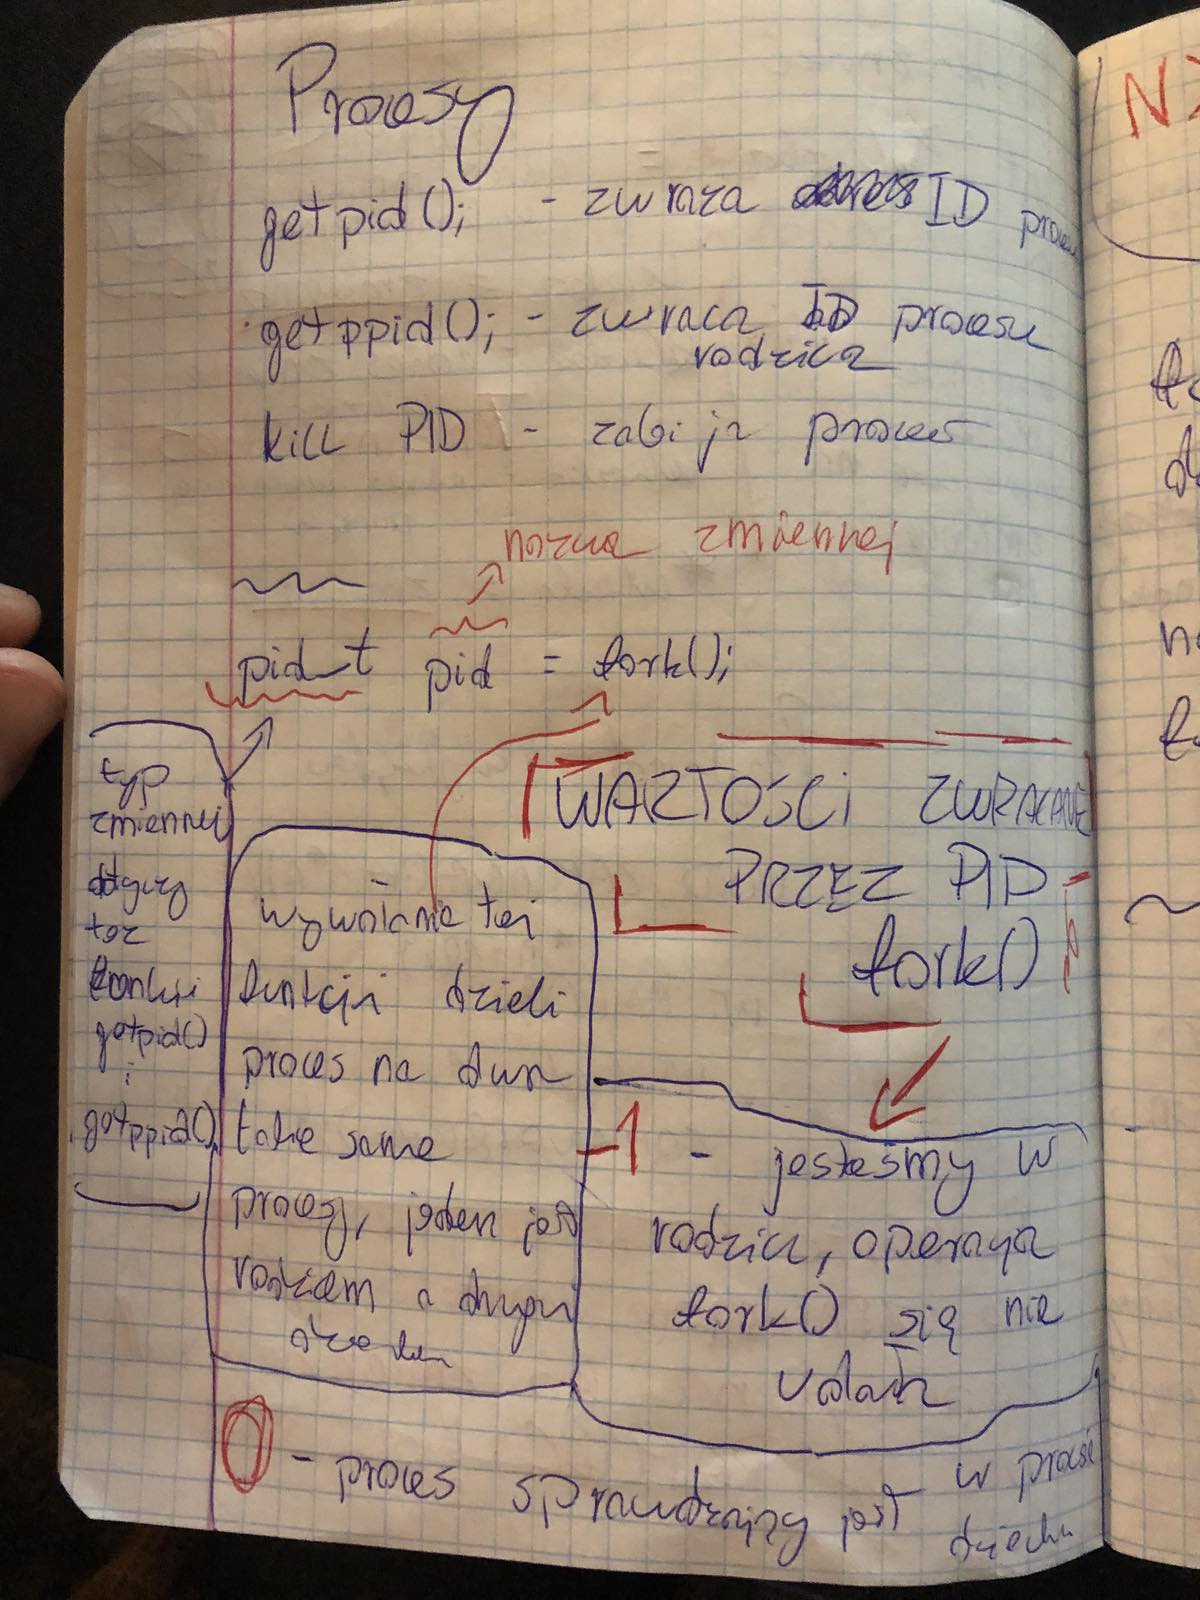 Procesy
getpid(); - zwraca ID procesu
getppid(); - zwraca ID procesu
rodzica
kill PID - zabija proces
nazwa zmiennej
pid_t pid = fork();
typ
zmiennej
dotyczy
też
funkcji
getpid()
i
getppid()
wywołanie tej
funkcji dzieli
proces na dwa
takie same
procesy, jeden jest
rodzicem a drugi
dzieckiem
WARTOŚCI ZWRACANE
PRZEZ PID
fork()
-1 - jesteśmy w
rodzicu, operacja
fork() się nie
udała
0 - proces sprawdzający jest w procesie
dziecka
NX